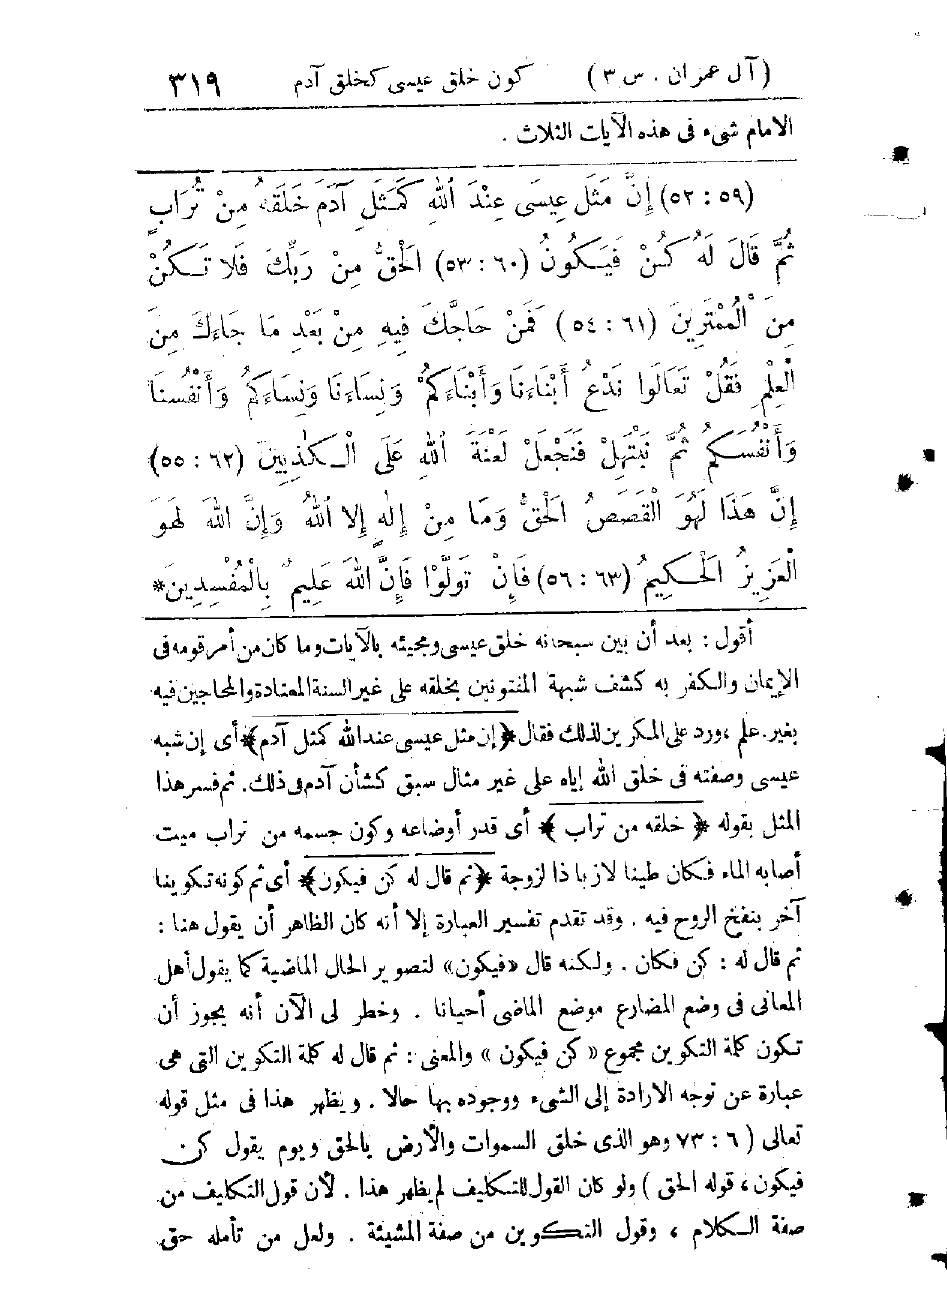 (آل عمران . س ٣) كون خلق عيسى كخلق آدم ٣١٩
الامام شىء فى هذه الآيات الثلاث .
(٥٢ : ٥٩) إِنَّ مَثَلَ عِيسَى عِنْدَ اللهِ كَمَثَلِ آدَمَ خَلَقَهُ مِنْ تُرَابٍ
ثُمَّ قَالَ لَهُ كُنْ فَيَكُونُ (٥٣ : ٦٠) الْحَقُّ مِنْ رَبِّكَ فَلَا تَكُنْ
مِنَ الْمُمْتَرِينَ (٥٤ : ٦١) فَمَنْ حَاجَّكَ فِيهِ مِنْ بَعْدِ مَا جَاءَكَ مِنَ
الْعِلْمِ فَقُلْ تَعَالَوا نَدْعُ أَبْنَاءَنَا وَأَبْنَاءَكُمْ وَنِسَاءَنَا وَنِسَاءَكُمْ وَأَنْفُسَنَا
وَأَنْفُسَكُمْ ثُمَّ نَبْتَهِلْ فَنَجْعَلْ لَعْنَةَ اللهِ عَلَى الْكَٰذِبِينَ (٥٥ : ٦٢)
إِنَّ هَذَا لَهُوَ الْقَصَصُ الْحَقُّ وَمَا مِنْ إِلٰهٍ إِلا اللهُ وَإِنَّ اللهَ لَهُوَ
الْعَزِيزُ الْحَكِيمُ (٥٦ : ٦٣) فَإِنْ تَوَلَّوْا فَإِنَّ اللهَ عَلِيمٌ بِالْمُفْسِدِينَ *
أقول : بعد أن بين سبحانه خلق عيسى ومجيئه بالآيات وما كان من أمر قومه فى
الإيمان والكفر به كشف شبهة المفتونين بخلقه على غير السنة المعتادة والمحاجين فيه
بغير علم ، ورد على المنكرين لذلك فقال ﴿ إن مثل عيسى عند الله كمثل آدم ﴾ أى إن شبه
عيسى وصفته فى خلق الله إياه على غير مثال سبق كشأن آدم فى ذلك . ثم فسر هذا
المثل بقوله ﴿ خلقه من تراب ﴾ أى قدر أوضاعه وكون جسمه من تراب ميت
أصابه الماء فكان طينا لازبا ذا لزوجة ﴿ ثم قال له كن فيكون ﴾ أى ثم كونه تكوينا
آخر بنفخ الروح فيه . وقد تقدم تفسير العبارة إلا أنه كان الظاهر أن يقول هنا :
ثم قال له : كن فكان . ولكنه قال «فيكون» لتصوير الحال الماضية كما يقول أهل
المعانى فى وضع المضارع موضع الماضى أحيانا . وخطر لى الآن أنه يجوز أن
تكون كلمة التكوين مجموع « كن فيكون » والمعنى : ثم قال له كلمة التكوين التى هى
عبارة عن توجه الارادة إلى الشىء ووجوده بها حالا . ويظهر هذا فى مثل قوله
تعالى ( ٦ : ٧٣ وهو الذى خلق السموات والأرض بالحق ويوم يقول كن
فيكون ، قوله الحق ) ولو كان القول للتكليف لم يظهر هذا . لأن قول التكليف من
صفة الكلام ، وقول التكوين من صفة المشيئة . ولعل من تأمله حق